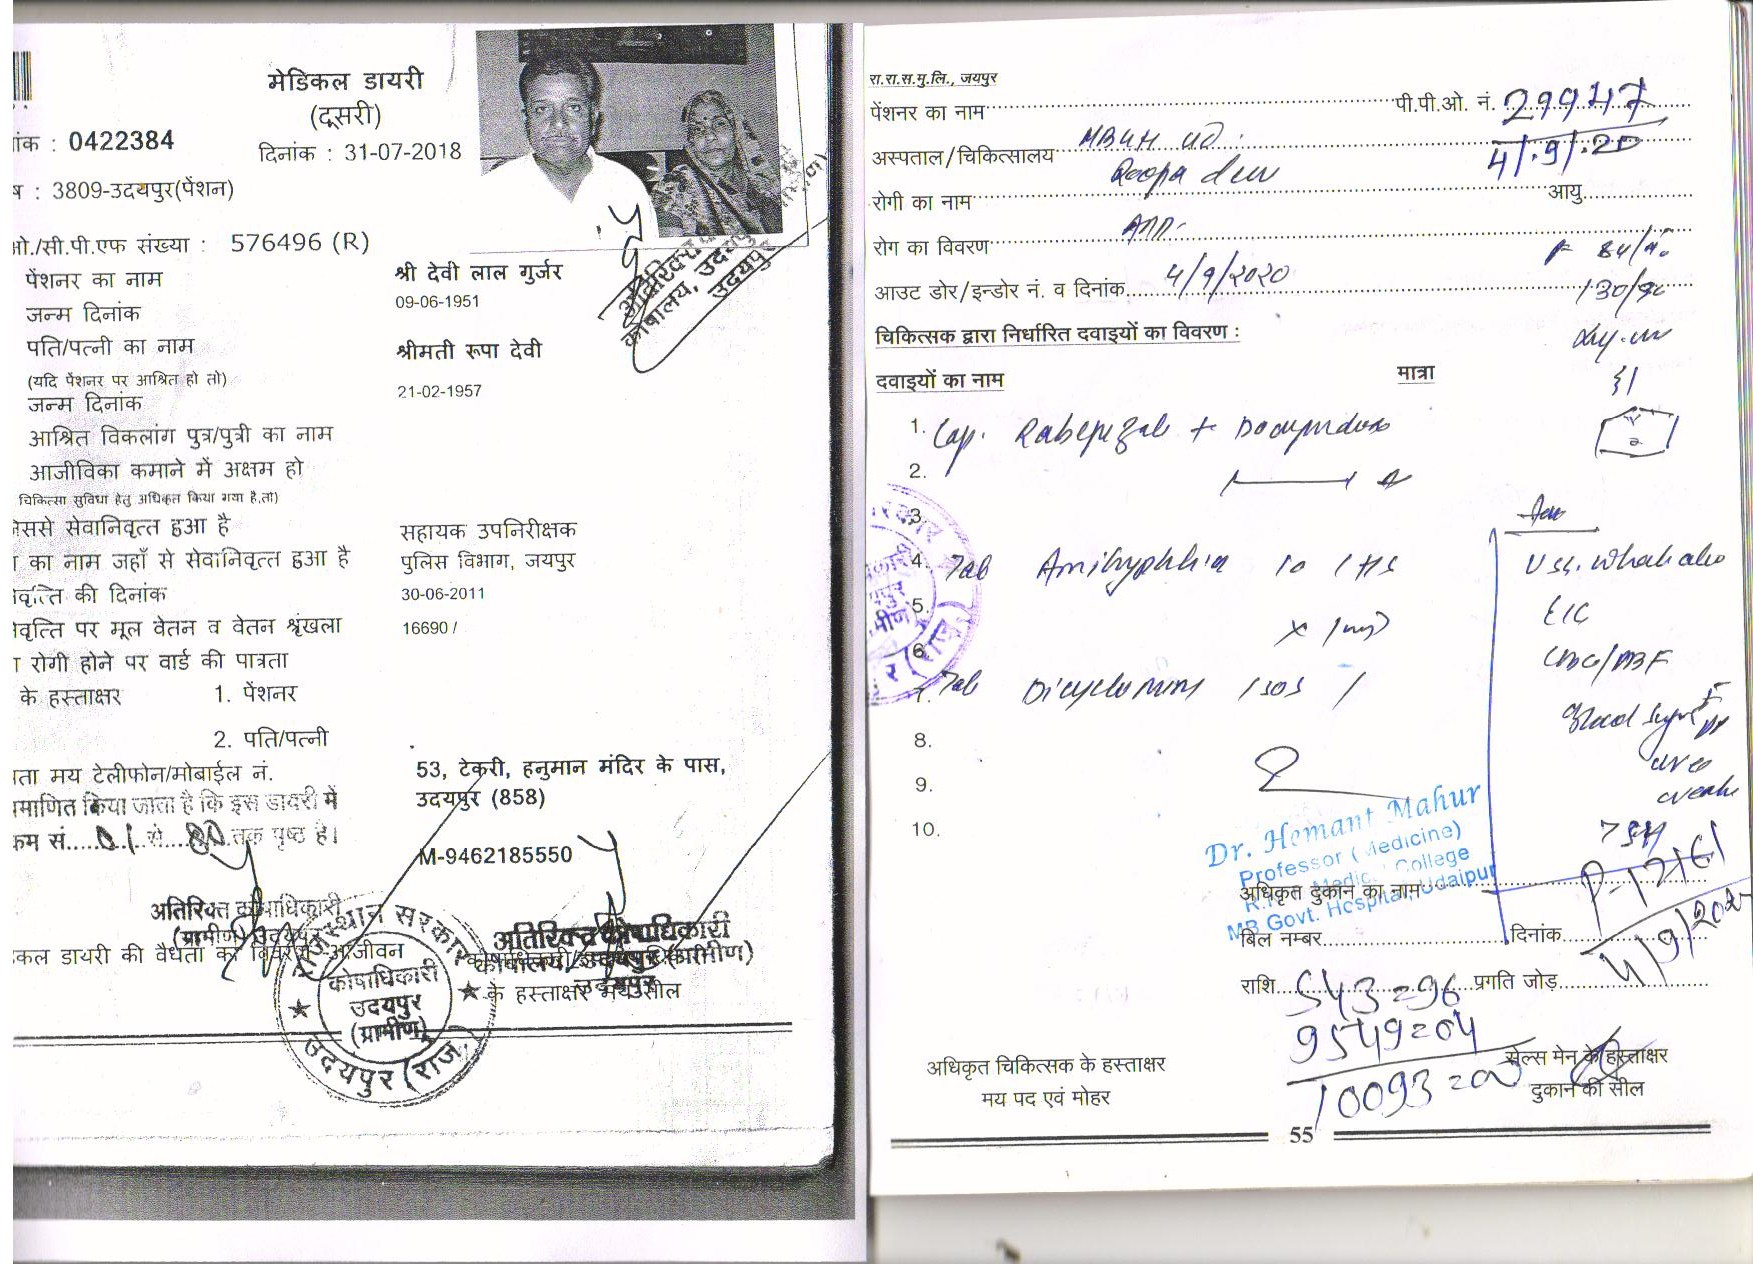 मेडिकल डायरी
(दूसरी)
ांक : 0422384
दिनांक : 31-07-2018
ष : 3809-उदयपुर(पेंशन)
ओ./सी.पी.एफ संख्या : 576496 (R)
पेंशनर का नाम श्री देवी लाल गुर्जर
जन्म दिनांक 09-06-1951
पति/पत्नी का नाम श्रीमती रूपा देवी
(यदि पेंशनर पर आश्रित हो तो)
जन्म दिनांक 21-02-1957
आश्रित विकलांग पुत्र/पुत्री का नाम
आजीविका कमाने में अक्षम हो
चिकित्सा सुविधा हेतु अधिकृत किया गया है,तो)
िससे सेवानिवृत्त हुआ है सहायक उपनिरीक्षक
ा का नाम जहाँ से सेवानिवृत्त हुआ है पुलिस विभाग, जयपुर
वृत्ति की दिनांक 30-06-2011
िवृत्ति पर मूल वेतन व वेतन श्रृंखला 16690 /
ा रोगी होने पर वार्ड की पात्रता
के हस्ताक्षर 1. पेंशनर
2. पति/पत्नी
पता मय टेलीफोन/मोबाईल नं. 53, टेकरी, हनुमान मंदिर के पास,
उदयपुर (858)
प्रमाणित किया जाता है कि इस डायरी में
कम सं.....01 से.....80 तक पृष्ठ है।
M-9462185550
अतिरिक्त कोषाधिकारी
(ग्रामीण) उदयपुर
अतिरिक्त कोषाधिकारी
कोषालय, उदयपुर (ग्रामीण)
उदयपुर
डिकल डायरी की वैधता का विवरण-आजीवन
के हस्ताक्षर मय सील
राजस्थान सरकार
कोषाधिकारी
उदयपुर
(ग्रामीण)
उदयपुर (राज.)
रा.रा.स.मु.लि., जयपुर
पेंशनर का नाम पी.पी.ओ. नं. 29947
अस्पताल/चिकित्सालय MBGH UD. 4/9/20
रोगी का नाम Roopa devi आयु
रोग का विवरण
आउट डोर/इन्डोर नं. व दिनांक 4/9/2020
130/90
चिकित्सक द्वारा निर्धारित दवाइयों का विवरण :
दवाइयों का नाम मात्रा
1. Cap.
2.
3.
4. Tab 10 1 HS
5.
6.
7. Tab
8.
9.
10.
Adv
USG. Whole abd
CBC/PBF
Blood Sugar
urea
TSH
P-17161
4/9/2020
Dr. Hemant Mahur
Professor (Medicine)
R.N.T. Medical College
MB Govt. Hospital, Udaipur
अधिकृत दुकान का नाम
बिल नम्बर दिनांक
राशि 543=96 प्रगति जोड़
9549=04
10093=00
अधिकृत चिकित्सक के हस्ताक्षर सेल्स मेन के हस्ताक्षर
मय पद एवं मोहर दुकान की सील
55